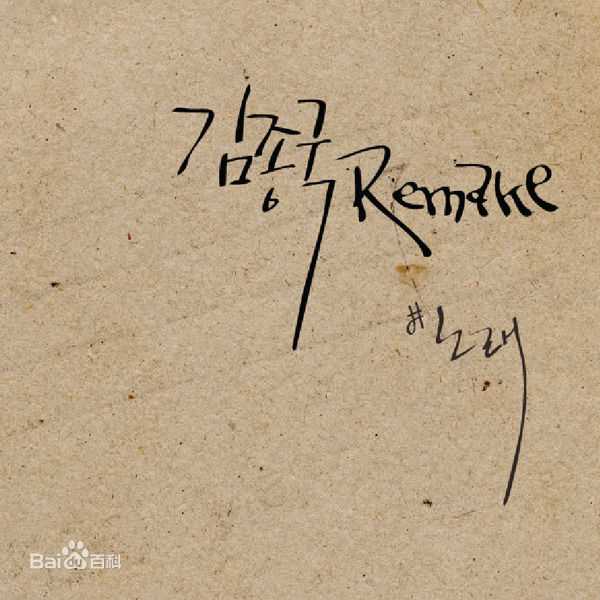 김종국 Remake
#노래
Bai du 百科